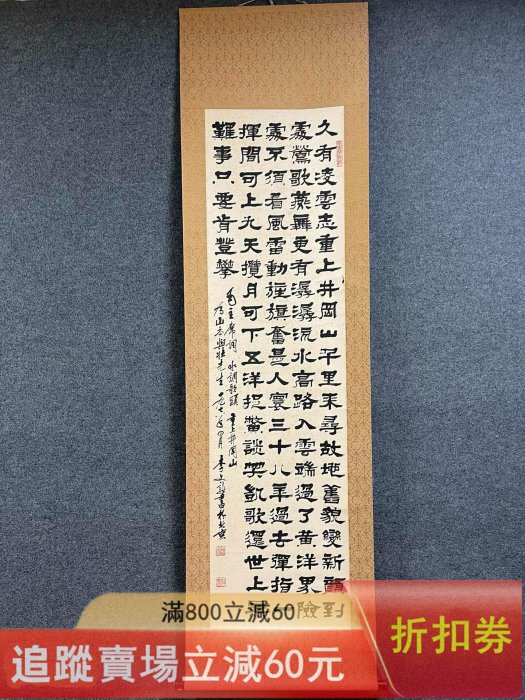 久有凌雲志重上井岡山千里来尋故地舊貌變新顔到
處鶯歌燕舞更有潺潺流水高路入雲端過了黄洋界險
處不須看風雷動旌旗奮是人寰三十八年過去彈指一
揮間可上九天攬月可下五洋捉鱉談笑凱歌還世上
難事只要肯登攀
毛主席詞 水調歌頭 重上井岡山
先生
書於北京
滿800立減60
追蹤賣場立減60元
折扣券